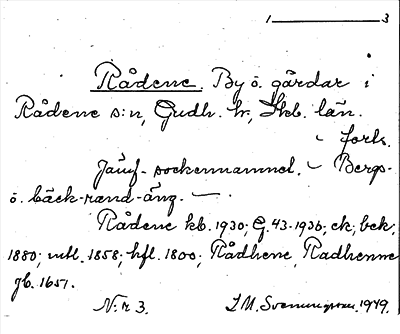 1 3
Rådene. By ö. gårdar i
Rådene s:n, Gudh. hr, Skb. län.
forts.
Jämf. sockennamnet. – Bergs-
ö. bäck-rand-äng. —
Rådene kb. 1930; G. 43-1936; ek; bek.
1880; mtl. 1858; hfl. 1800; Rådhene, Radhenne
jb. 1651.
N:r 3. I.M. Svenningsson. 1949.